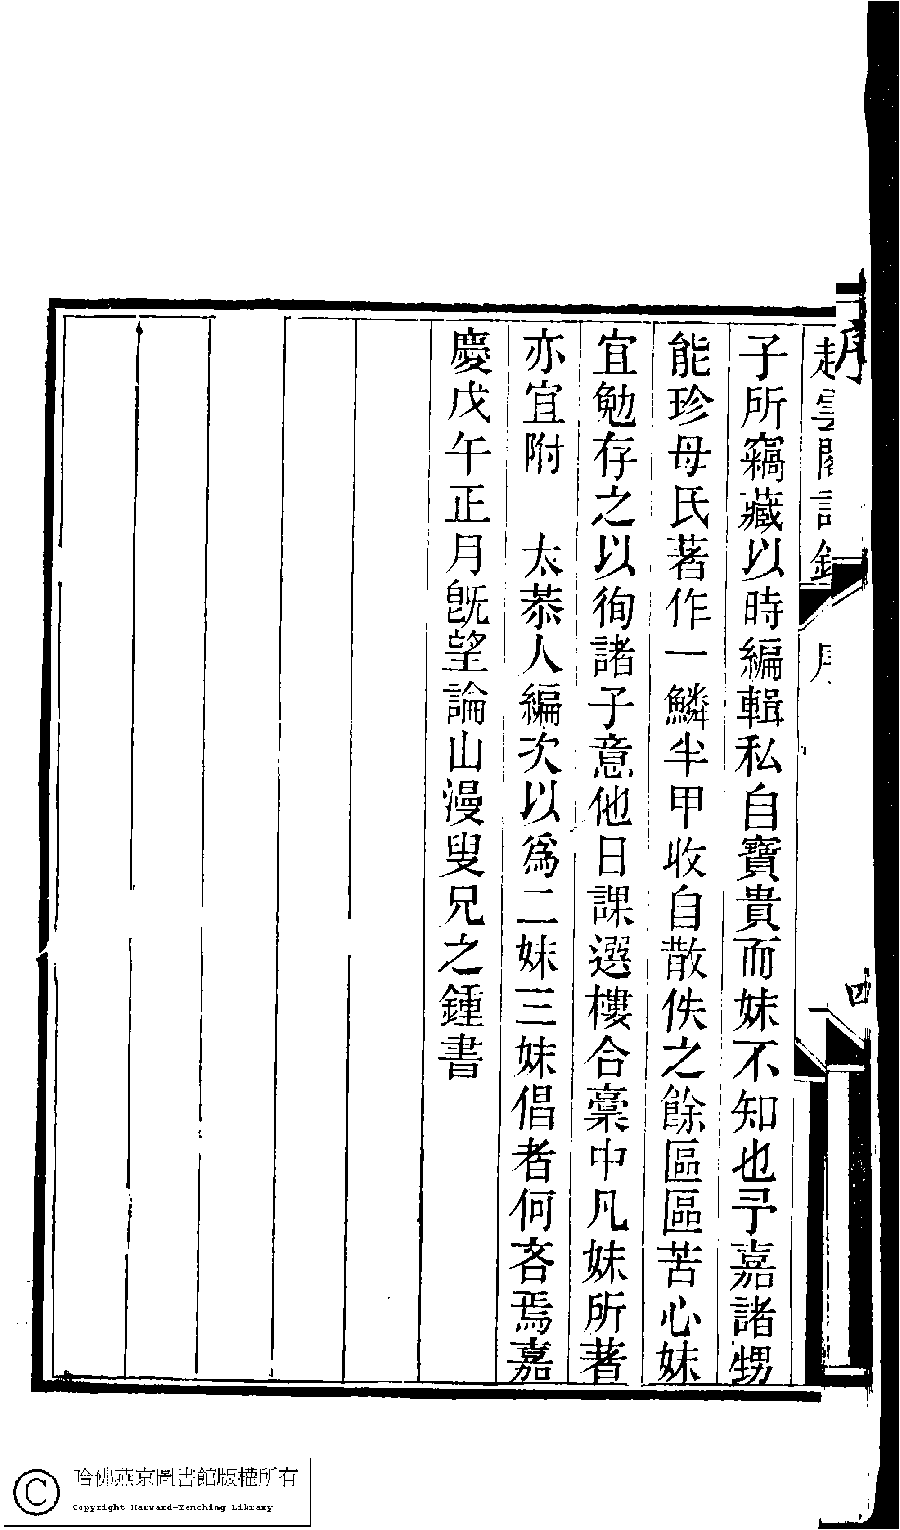 起雲閣詩鈔 序 四
子所竊藏以時編輯私自寶貴而妹不知也予嘉諸甥
能珍母氏著作一鱗半甲收自散佚之餘區區苦心妹
宜勉存之以徇諸子意他日課選樓合稾中凡妹所著
亦宜附 太恭人編次以爲二妹三妹倡者何吝焉嘉
慶戊午正月旣望論山漫叟兄之鍾書
哈佛燕京圖書館版權所有
Copyright Harvard-Yenching Library